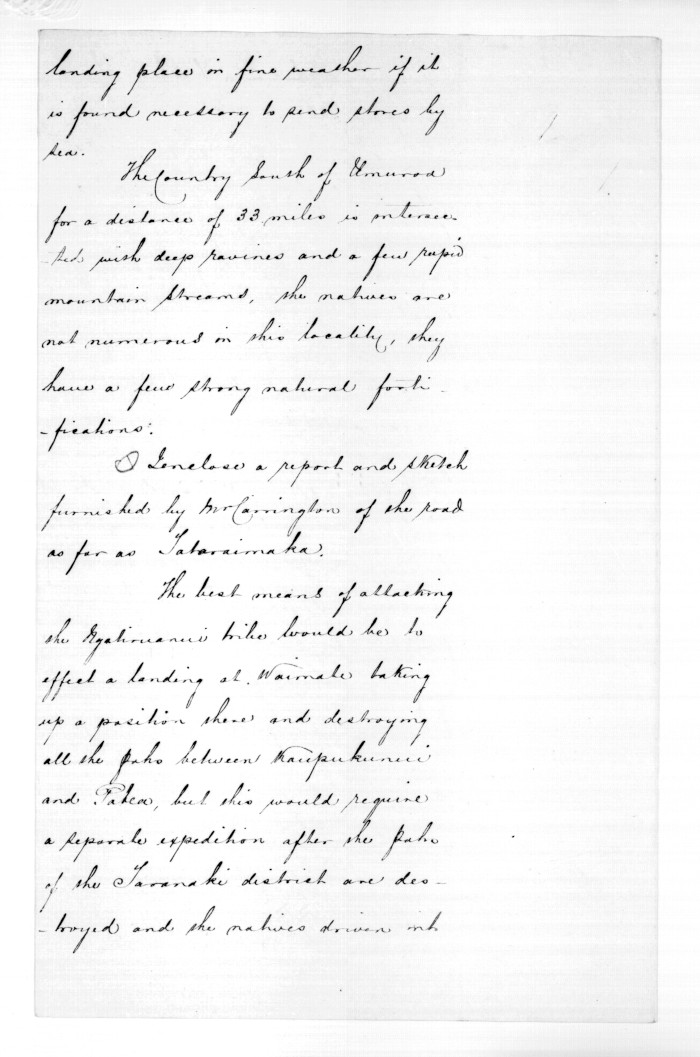 landing place in fine weather if it
is found necessary to send stores by
sea.
The Country South of Umuroa
for a distance of 33 miles is intersec-
-ted with deep ravines and a few rapid
mountain streams, the natives are
not numerous in this locality, they
have a few strong natural forti-
-fications.
I enclose a report and sketch
furnished by Mr Carrington of the road
as far as Tataraimaka.
The best means of attacking
the Ngatiruanui tribe would be to
effect a landing at Waimate taking
up a position there and destroying
all the pahs between Kaupukunui
and Patea, but this would require
a separate expedition after the pahs
of the Taranaki district are des-
-troyed and the natives driven into